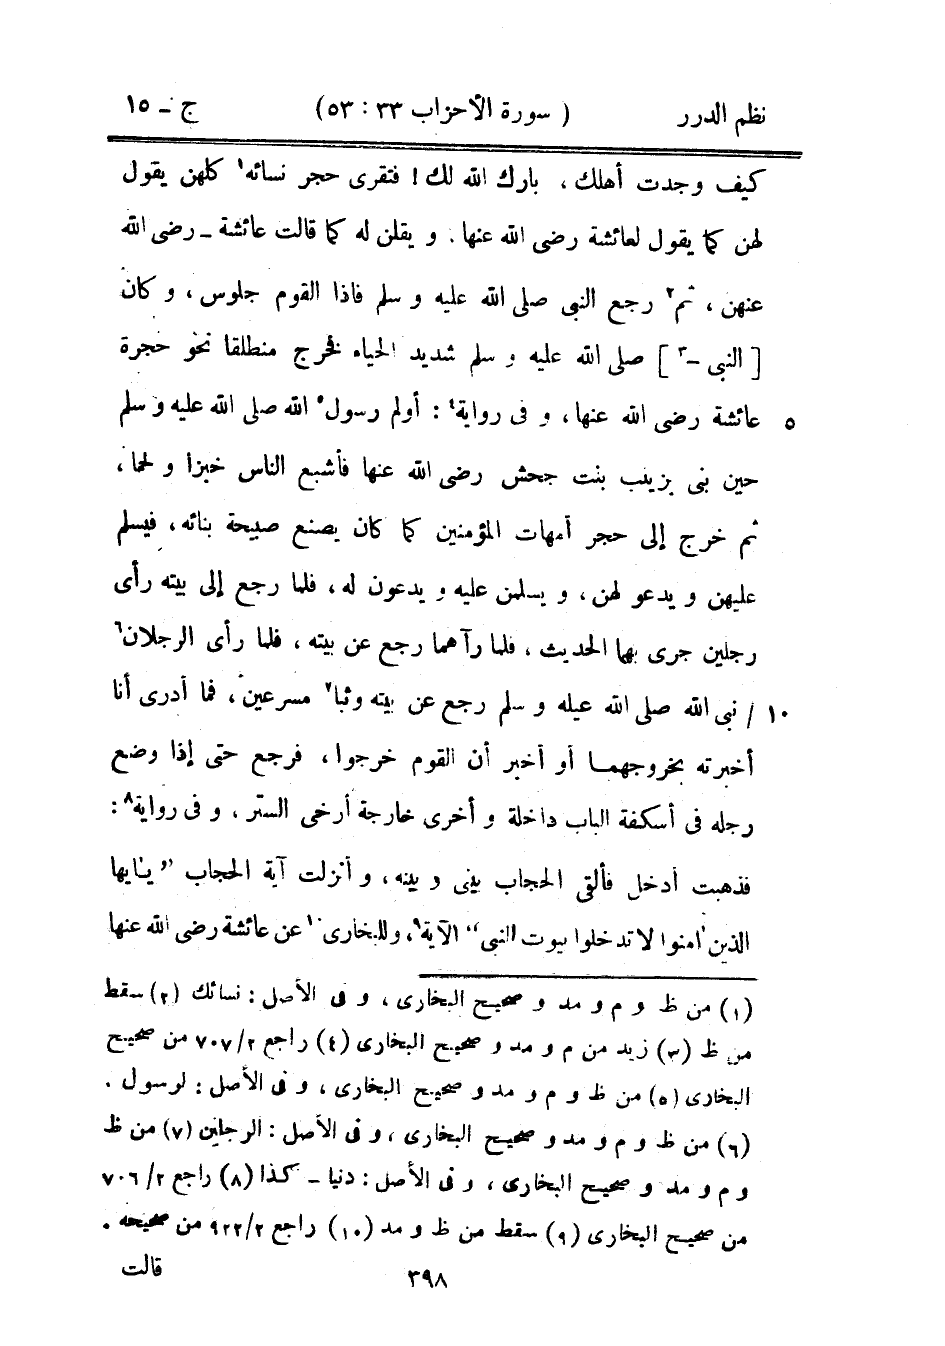 نظم الدرر ( سورة الأحزاب ٣٣ : ٥٣ ) ج - ١٥
كيف وجدت أهلك ، بارك الله لك ! فتقرى حجر نسائه١ كلهن يقول
لهن كما يقول لعائشة رضى الله عنها . و يقلن له كما قالت عائشة - رضى الله
عنهن ، ثم٢ رجع النبى صلى الله عليه و سلم فاذا القوم جلوس ، و كان
[ النبى -٣ ] صلى الله عليه و سلم شديد الحياء فخرج منطلقا نحو حجرة
٥ عائشة رضى الله عنها ، و فى رواية٤ : أولم رسول٥ الله صلى الله عليه و سلم
حين بنى بزينب بنت جحش رضى الله عنها فأشبع الناس خبزا و لحما ،
ثم خرج إلى حجر أمهات المؤمنين كما كان يصنع صبيحة بنائه ، فيسلم
عليهن و يدعو لهن ، و يسلمن عليه و يدعون له ، فلما رجع إلى بيته رأى
رجلين جرى بهما الحديث ، فلما رآهما رجع عن بيته ، فلما رأى الرجلان٦
١٠ / نبى الله صلى الله عيله و سلم رجع عن بيته وثبا٧ مسرعين ، فما أدرى أنا
أخبرته بخروجهما أو أخبر أن القوم خرجوا ، فرجع حتى إذا وضع
رجله فى أسكفة الباب داخلة و أخرى خارجة أرخى الستر ، و فى رواية٨ :
فذهبت أدخل فألقى الحجاب بينى و بينه ، و أنزلت آية الحجاب ” يٰايها
الذين اٰمنوا لا تدخلوا بيوت النبى “ الآية٩ ، وللبخارى١٠ عن عائشة رضى الله عنها
(١) من ظ و م و مد و صحيح البخارى ، و فى الأصل : نسائك (٢) سقط
من ظ (٣) زيد من م و مد و صحيح البخارى (٤) راجع ٢/ ٧٠٧ من صحيح
البخارى (٥) من ظ و م و مد و صحيح البخارى ، و فى الأصل : لرسول .
(٦) من ظ و م و مد و صحيح البخارى ، و فى الأصل : الرجلين (٧) من ظ
و م و مد و صحيح البخارى ، و فى الأصل : دنيا - كذا (٨) راجع ٢/ ٧٠٦
من صحيح البخارى (٩) سقط من ظ و مد (١٠) راجع ٢/ ٩٢٢ من صحيحه .
٣٩٨ قالت